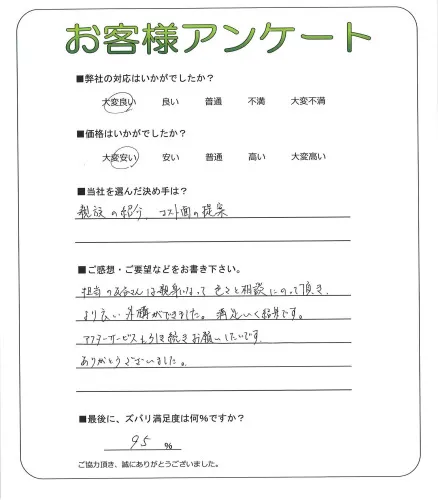 お客様アンケート
■弊社の対応はいかがでしたか?
大変良い 良い 普通 不満 大変不満
■価格はいかがでしたか?
大変安い 安い 普通 高い 大変高い
■当社を選んだ決め手は?
の紹介、コスト面の提案
■ご感想・ご要望などをお書き下さい。
担当の は親身になって 色々と相談にのって頂き、
より良い ができました。満足いく結果です。
アフターサービスも引き続きお願いしたいです。
ありがとうございました。
■最後に、ズバリ満足度は何%ですか?
95 %
ご協力頂き、誠にありがとうございました。